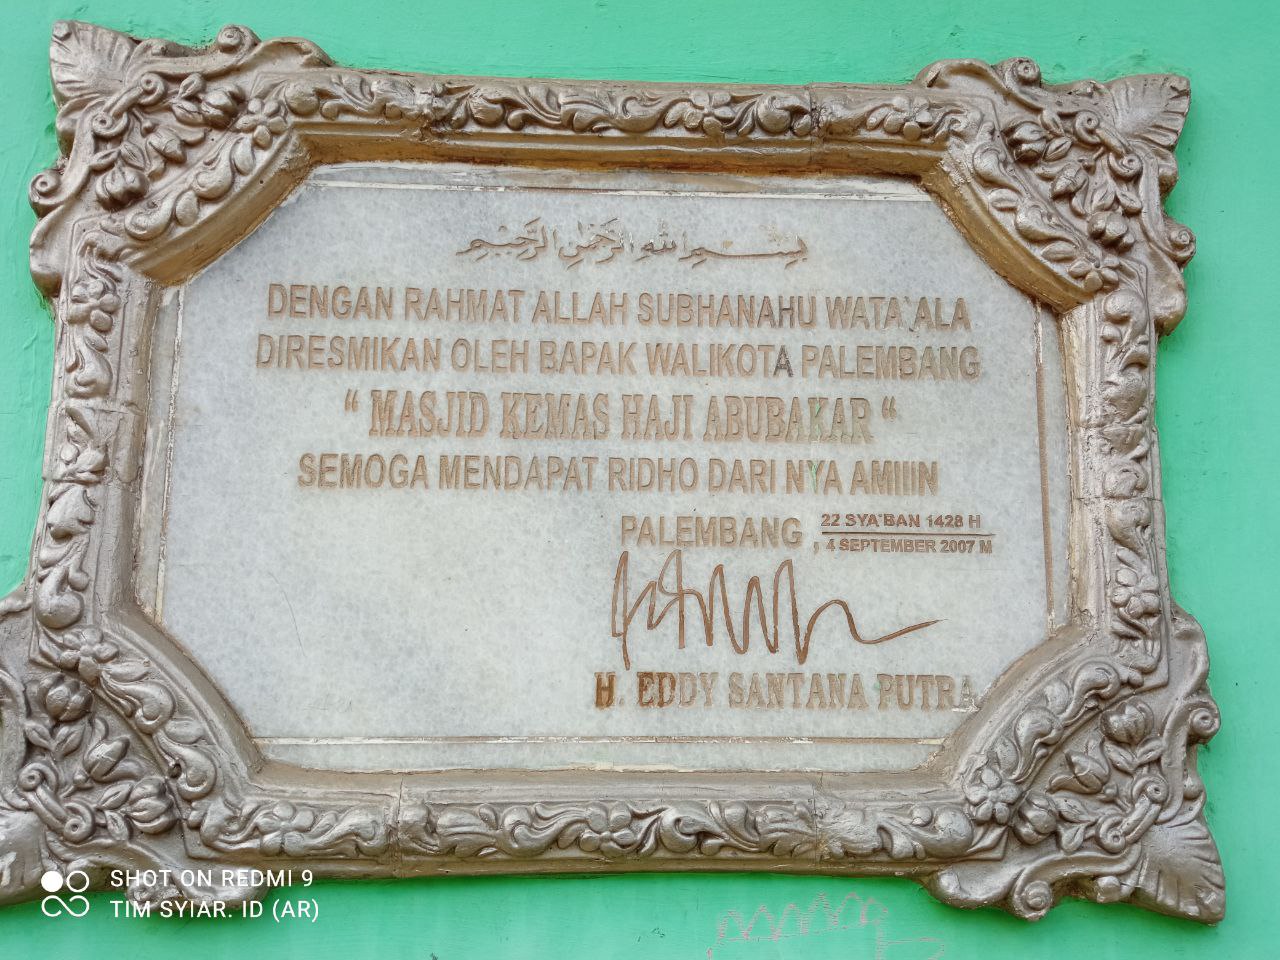 بسم الله الرحمن الرحيم
DENGAN RAHMAT ALLAH SUBHANAHU WATA`ALA
DIRESMIKAN OLEH BAPAK WALIKOTA PALEMBANG
“ MASJID KEMAS HAJI ABUBAKAR “
SEMOGA MENDAPAT RIDHO DARI NYA AMIIIN
PALEMBANG , 22 SYA'BAN 1428 H
4 SEPTEMBER 2007 M
H. EDDY SANTANA PUTRA
SHOT ON REDMI 9
TIM SYIAR. ID (AR)